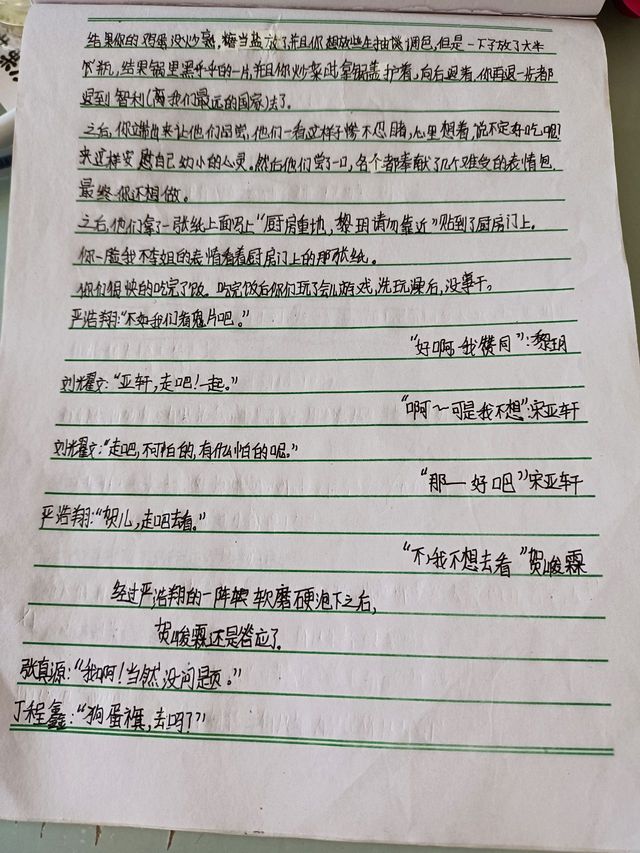 结果你的鸡蛋没炒熟,糖当盐放了并且你想放些生抽调调色,但是一下子放了大半
下瓶,结果锅里黑乎乎的一片,并且你炒菜时拿锅盖护着,向后退着,你再退一步都
退到智利(离我们最远的国家)去了。
之后,你端出来让他们品尝,他们一看这样子惨不忍睹,心里想着,说不定好吃呢
来这样安慰自己幼小的心灵。然后他们尝了一口,各个都奉献了几个难受的表情包
最终你还想做。
之后,他们拿了一张纸上面写上“厨房重地,黎玥请勿靠近”贴到了厨房门上。
你一脸我不李姐的表情看着厨房门上的那张纸。
你们很快的吃完了饭。吃完饭后你们玩了会儿游戏,洗玩澡后,没事干。
严浩翔:“不如我们看鬼片吧。”
“好啊,我赞同”:黎玥
刘耀文:“亚轩,走吧!一起。”
“啊~可是我不想”:宋亚轩
刘耀文:“走吧,不可怕的,有什么怕的呢。”
“那—好吧”宋亚轩
严浩翔:“贺儿,走吧去看。”
“不,我不想去看”贺峻霖
经过严浩翔的一阵软磨硬泡下之后,
贺峻霖还是答应了。
张真源:“我啊!当然没问题。”
丁程鑫:“狗蛋祺,去吗?”